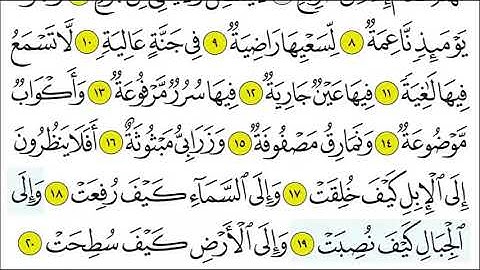 يَوْمَئِذٍ نَّاعِمَةٌ ٨ لِّسَعْيِهَا رَاضِيَةٌ ٩ فِي جَنَّةٍ عَالِيَةٍ ١٠ لَّا تَسْمَعُ
فِيهَا لَٰغِيَةً ١١ فِيهَا عَيْنٌ جَارِيَةٌ ١٢ فِيهَا سُرُرٌ مَّرْفُوعَةٌ ١٣ وَأَكْوَابٌ
مَّوْضُوعَةٌ ١٤ وَنَمَارِقُ مَصْفُوفَةٌ ١٥ وَزَرَابِيُّ مَبْثُوثَةٌ ١٦ أَفَلَا يَنظُرُونَ
إِلَى الْإِبِلِ كَيْفَ خُلِقَتْ ١٧ وَإِلَى السَّمَاءِ كَيْفَ رُفِعَتْ ١٨ وَإِلَى
الْجِبَالِ كَيْفَ نُصِبَتْ ١٩ وَإِلَى الْأَرْضِ كَيْفَ سُطِحَتْ ٢٠